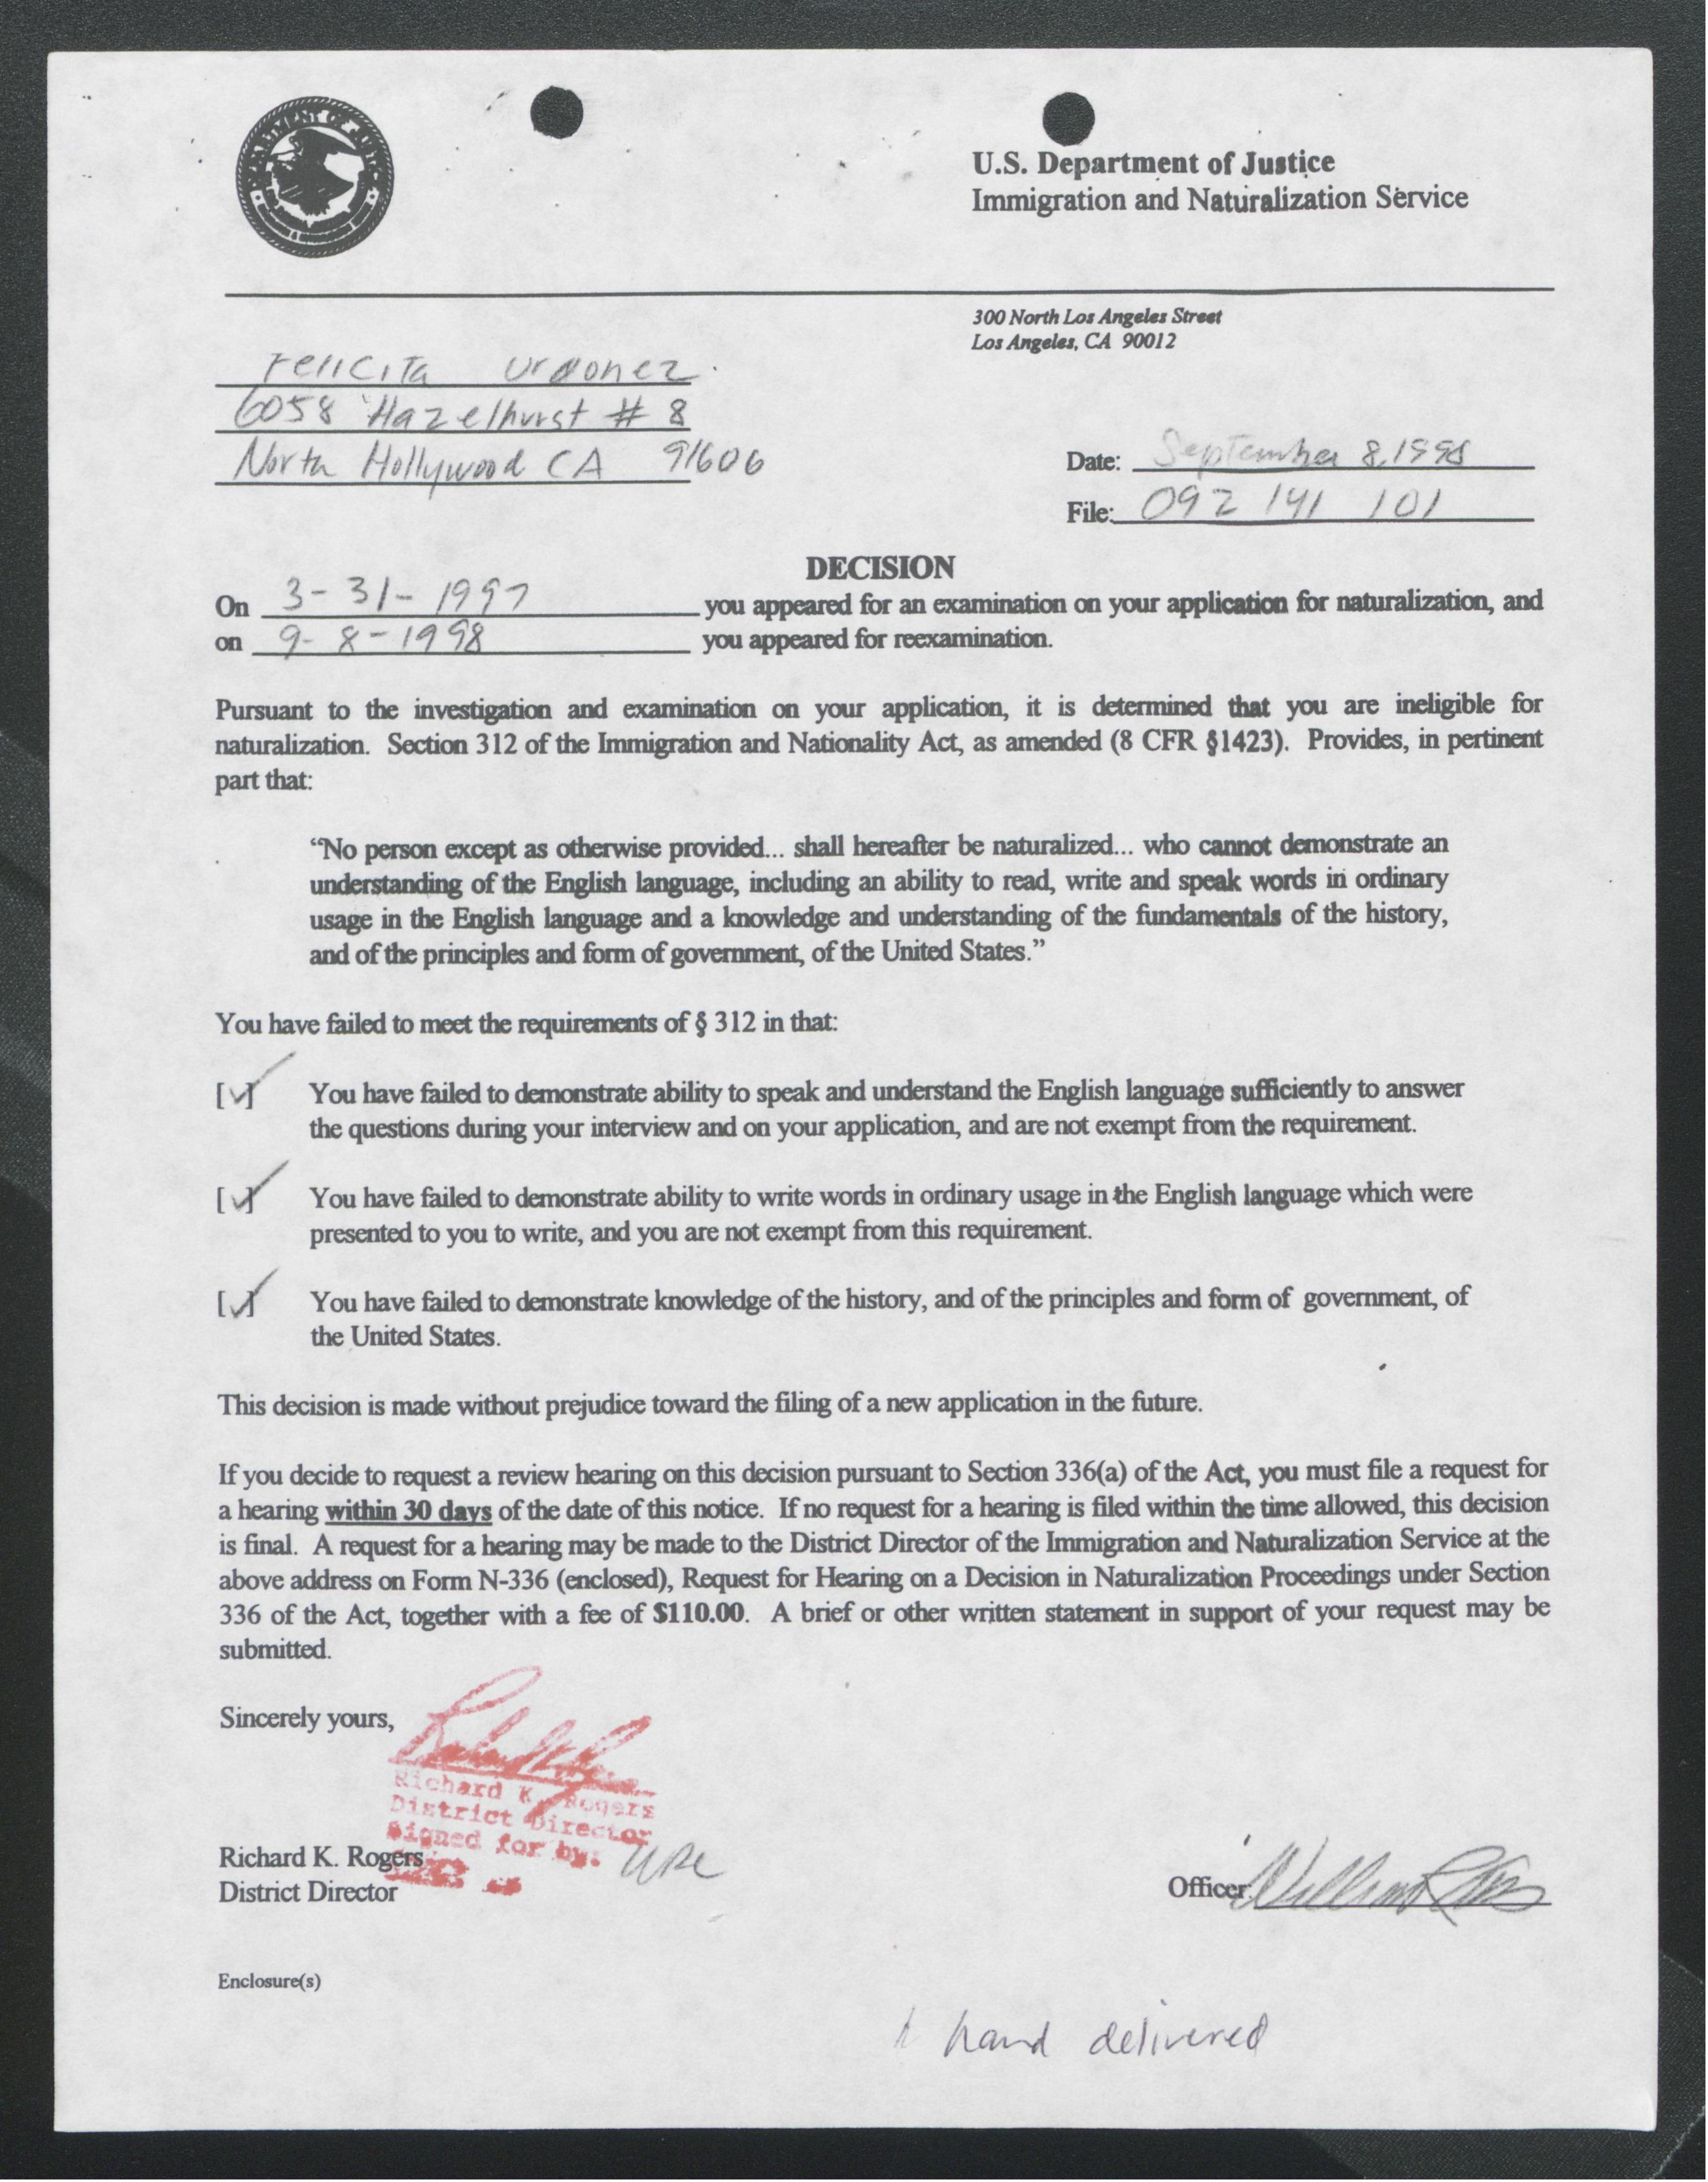 U.S. Department of Justice
Immigration and Naturalization Service
300 North Los Angeles Street
Los Angeles, CA 90012
Felicita Ordonez
6058 Hazelhurst # 8
North Hollywood CA 91606
Date: September 8, 1998
File: 092 141 101
DECISION
On 3-31-1997 you appeared for an examination on your application for naturalization, and
on 9-8-1998 you appeared for reexamination.
Pursuant to the investigation and examination on your application, it is determined that you are ineligible for
naturalization. Section 312 of the Immigration and Nationality Act, as amended (8 CFR §1423). Provides, in pertinent
part that:
“No person except as otherwise provided... shall hereafter be naturalized... who cannot demonstrate an
understanding of the English language, including an ability to read, write and speak words in ordinary
usage in the English language and a knowledge and understanding of the fundamentals of the history,
and of the principles and form of government, of the United States.”
You have failed to meet the requirements of § 312 in that:
[✓] You have failed to demonstrate ability to speak and understand the English language sufficiently to answer
the questions during your interview and on your application, and are not exempt from the requirement.
[✓] You have failed to demonstrate ability to write words in ordinary usage in the English language which were
presented to you to write, and you are not exempt from this requirement.
[✓] You have failed to demonstrate knowledge of the history, and of the principles and form of government, of
the United States.
This decision is made without prejudice toward the filing of a new application in the future.
If you decide to request a review hearing on this decision pursuant to Section 336(a) of the Act, you must file a request for
a hearing within 30 days of the date of this notice. If no request for a hearing is filed within the time allowed, this decision
is final. A request for a hearing may be made to the District Director of the Immigration and Naturalization Service at the
above address on Form N-336 (enclosed), Request for Hearing on a Decision in Naturalization Proceedings under Section
336 of the Act, together with a fee of $110.00. A brief or other written statement in support of your request may be
submitted.
Sincerely yours,
Richard K. Rogers
District Director
Signed for by:
Richard K. Rogers
District Director
Officer:
Enclosure(s)
hand delivered